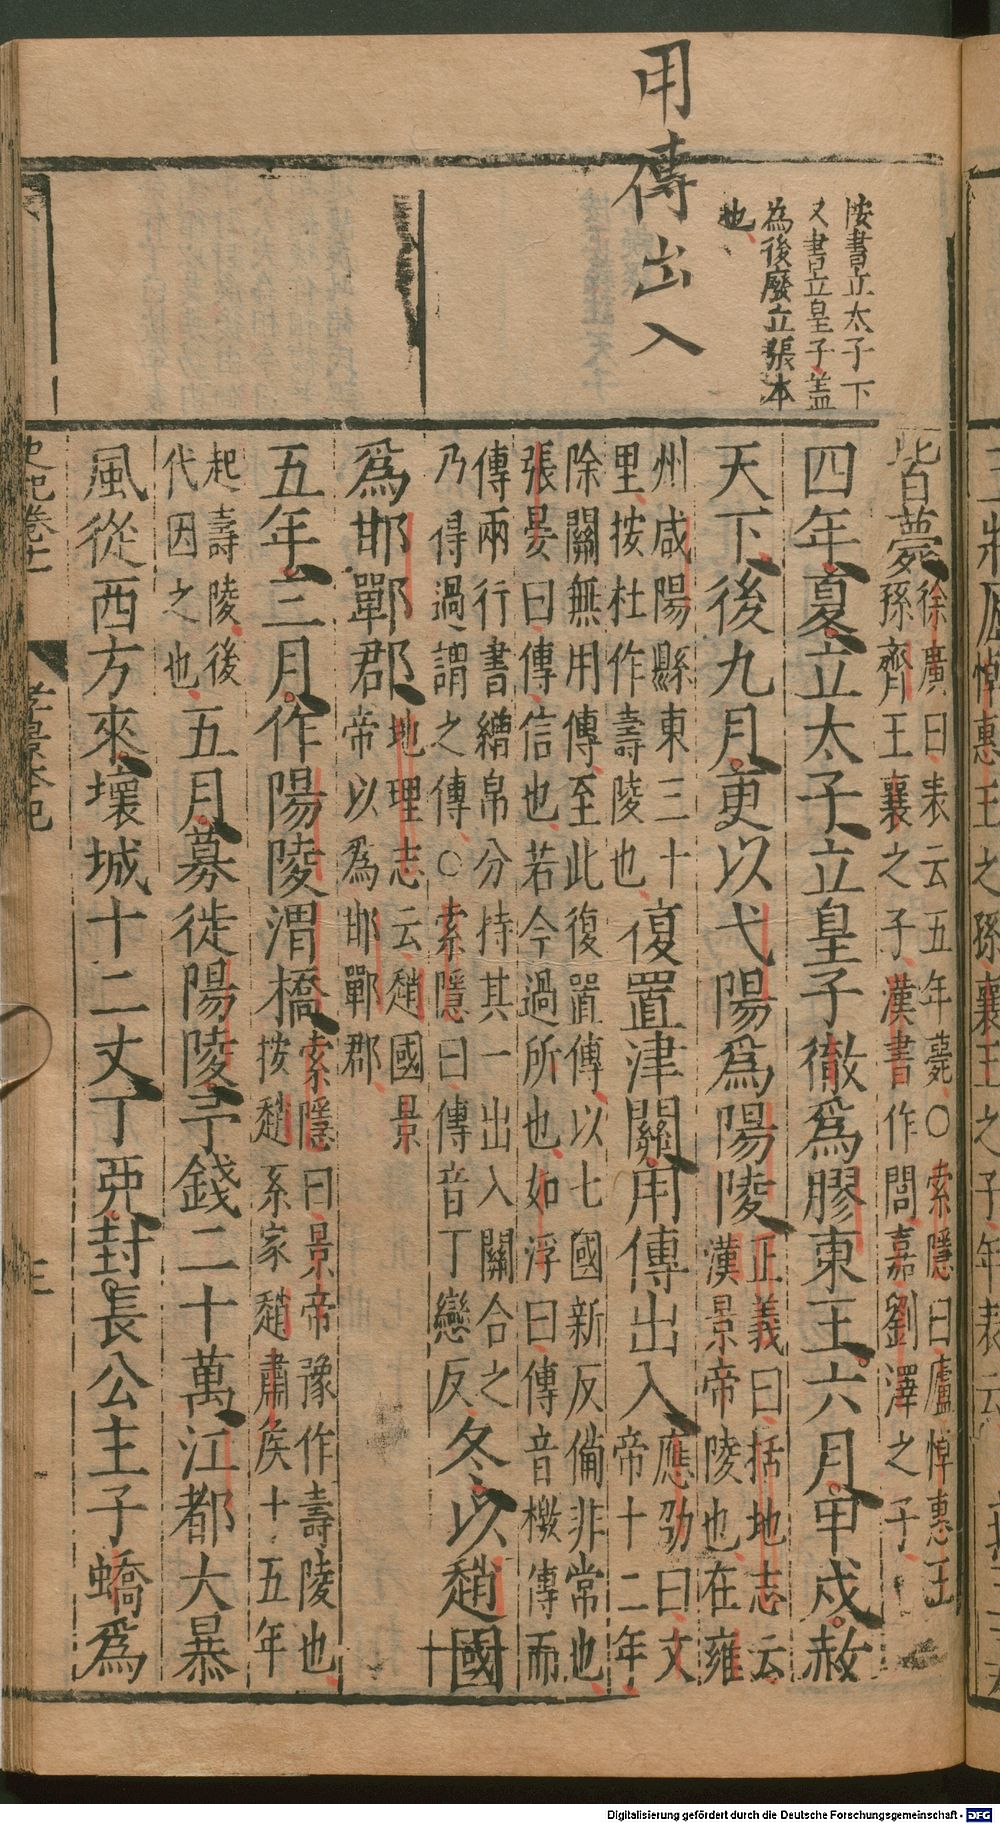 用傳出入
按書立太子下
又書立皇子盖
為後廢立張本
也
皆薨徐廣曰表云五年薨○索隱曰廬悼惠王
孫齊王襄之子漢書作閭嘉劉澤之子
四年夏立太子立皇子徹爲膠東王六月甲戌赦
天下後九月更以弋陽爲陽陵正義曰括地志云
漢景帝陵也在雍
州咸陽縣東三十
里按杜作壽陵也復置津關用傳出入應劭曰文
帝十二年
除關無用傳至此復置傳以七國新反備非常也
張晏曰傳信也若今過所也如淳曰傳音檄傳而
傳兩行書繒帛分持其一出入關合之
乃得過謂之傳○索隱曰傳音丁戀反冬以趙國
爲邯鄲郡地理志云趙國景
帝以爲邯鄲郡
五年三月作陽陵渭橋索隱曰景帝豫作壽陵也
按趙系家趙肅侯十五年
起壽陵後
代因之也五月募徙陽陵予錢二十萬江都大暴
風從西方來壞城十二丈丁夘封長公主子蟜爲
史記卷十一
孝景本紀
三
Digitalisierung gefördert durch die Deutsche Forschungsgemeinschaft - DFG